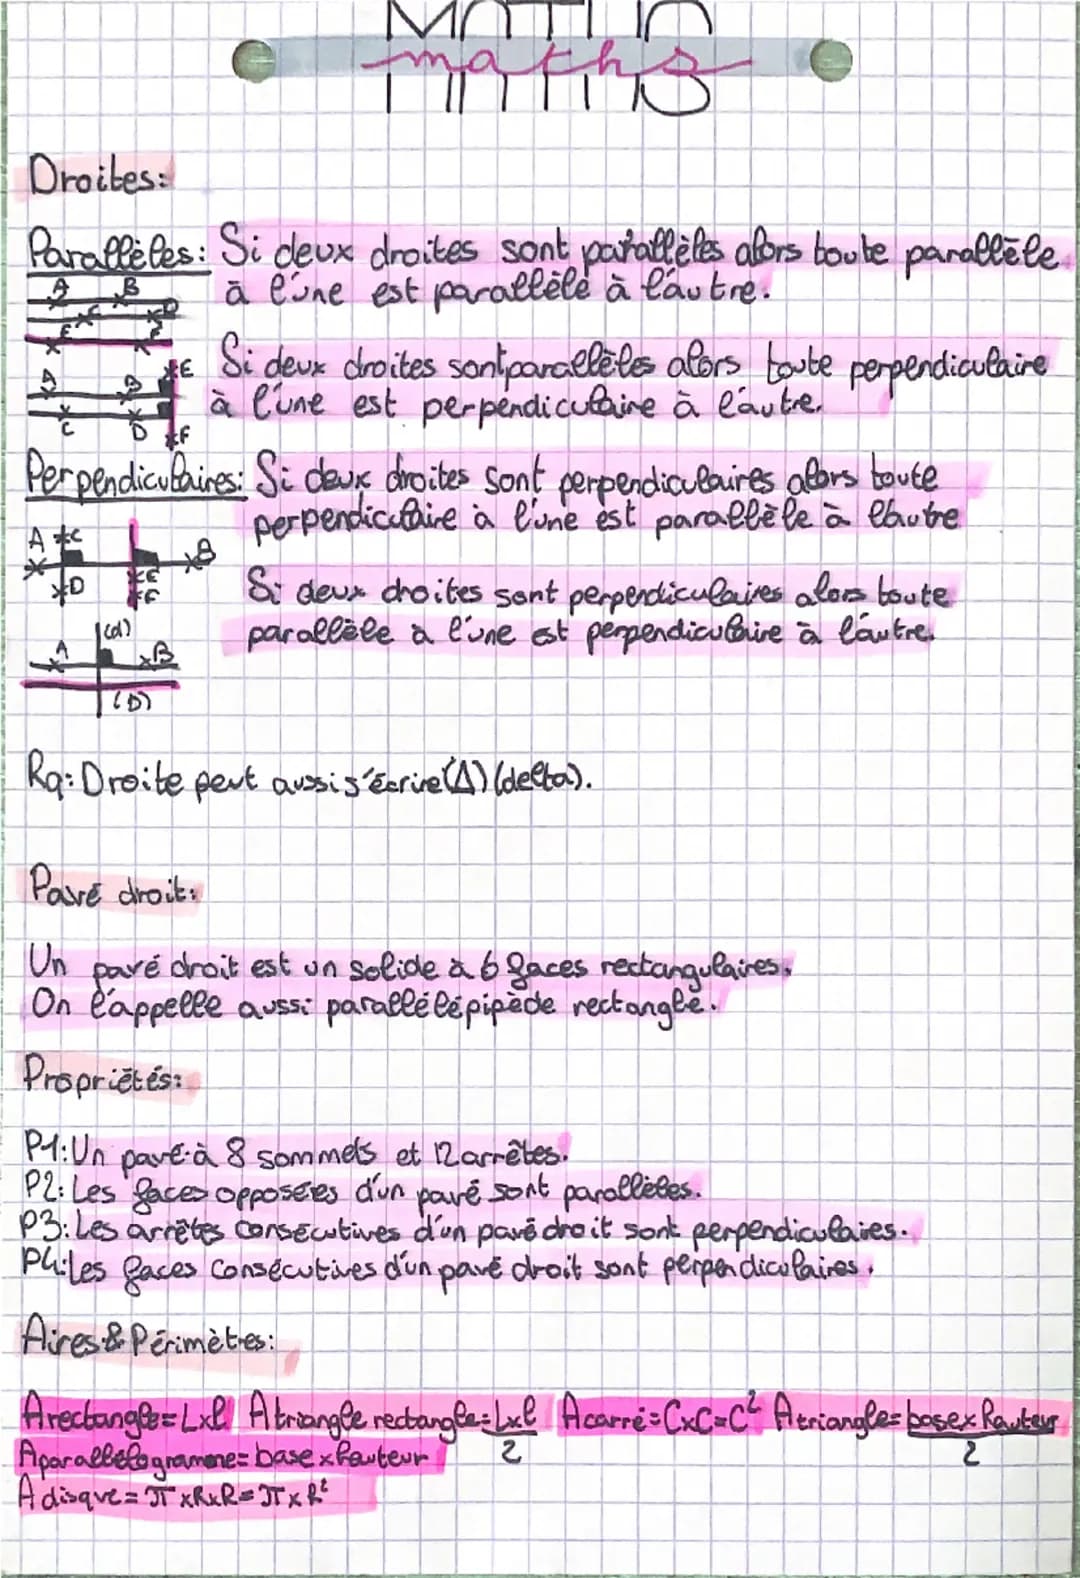 MATHS
maths
Droites:
Parallèles: Si deux droites sont parallèles alors toute parallèle
à l'une est parallèle à l'autre.
A B
C D
E F
Si deux droites sont parallèles alors toute perpendiculaire
à l'une est perpendiculaire à l'autre.
A B E
C D F
Perpendiculaires: Si deux droites sont perpendiculaires alors toute
perpendiculaire à l'une est parallèle à l'autre
A C B
D E
F
Si deux droites sont perpendiculaires alors toute
parallèle à l'une est perpendiculaire à l'autre.
(d)
A B
(D)
Rq: Droite peut aussi s'écrire (Δ) (delta).
Pavé droit:
Un pavé droit est un solide à 6 faces rectangulaires.
On l'appelle aussi parallélépipède rectangle.
Propriétés:
P1: Un pavé à 8 sommets et 12 arrêtes.
P2: Les faces opposées d'un pavé sont parallèles.
P3: Les arrêtes consécutives d'un pavé droit sont perpendiculaires.
P4: Les faces consécutives d'un pavé droit sont perpendiculaires.
Aires & Périmètres:
Arectangle = L x l A triangle rectangle = L x l / 2 Acarré = C x C = C² Atriangle = base x hauteur / 2
Aparallélogramme = base x hauteur
Adisque = π x R x R = π x R²